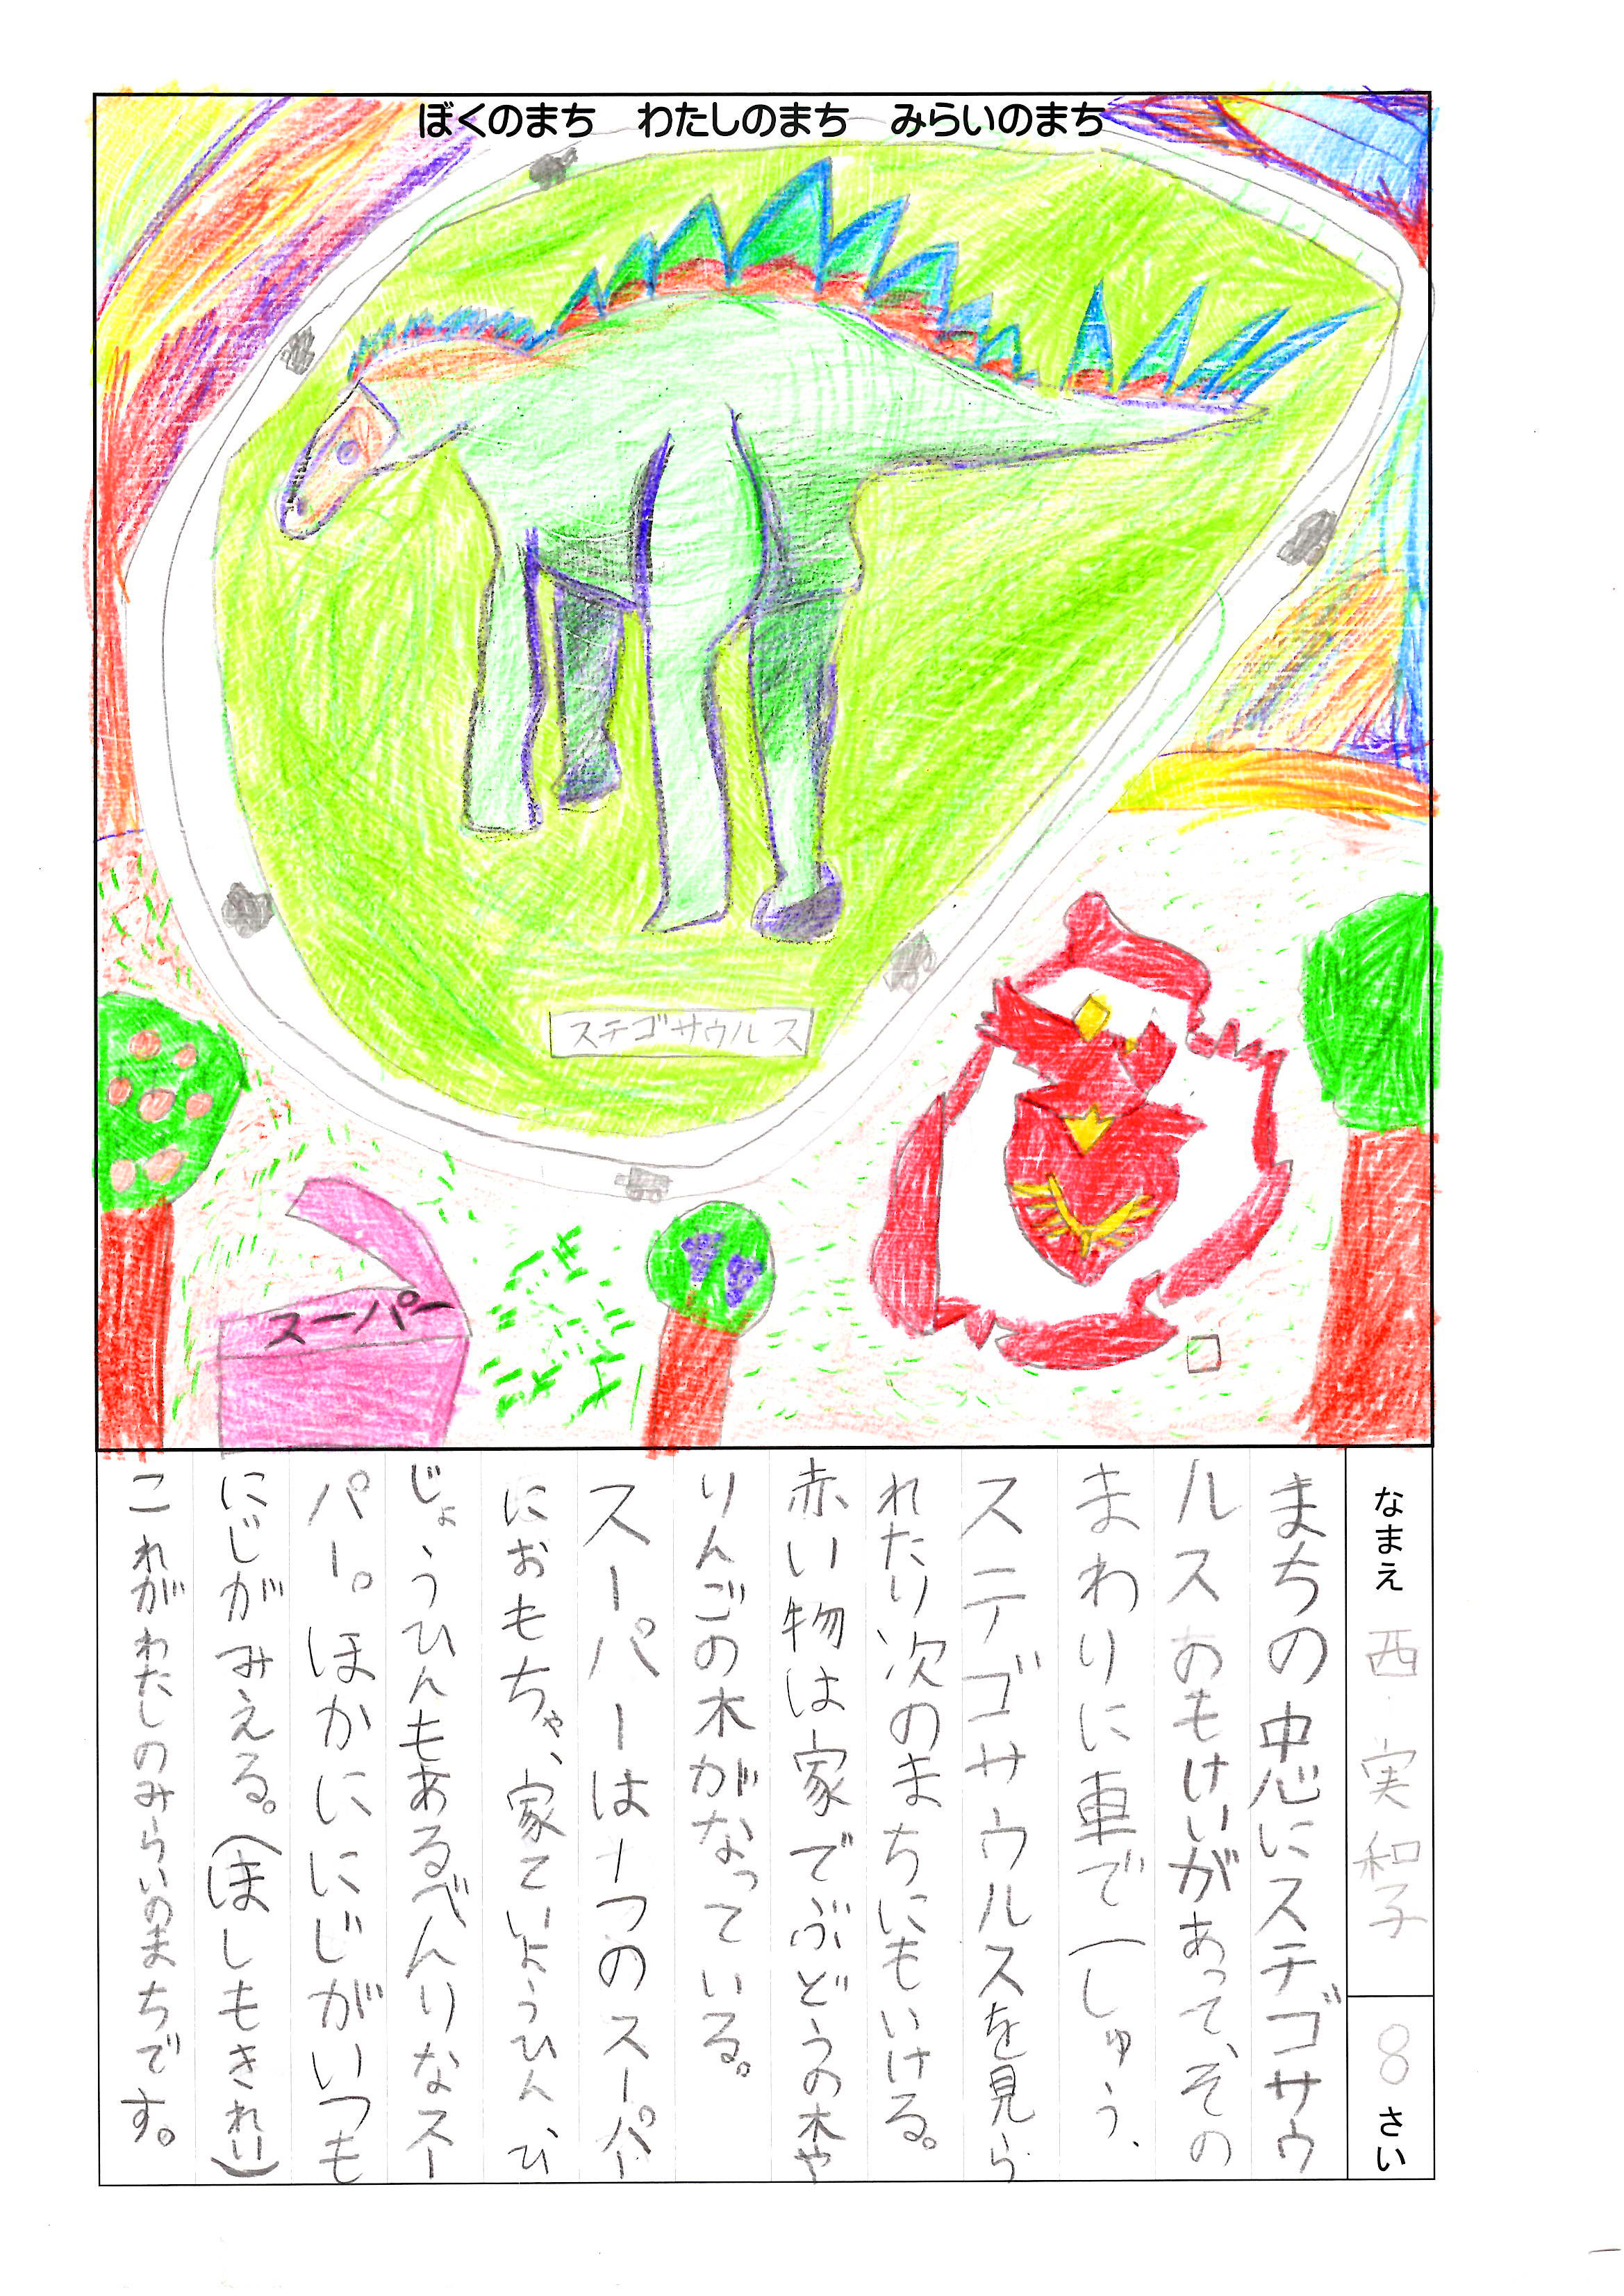 ぼくのまち　わたしのまち　みらいのまち
スチゴサウルス
スーパー
なまえ　西　実和子
8さい
まちの中心にスチゴサウ
ルスのもけいがあって、その
まわりに車で一しゅう、
ステゴサウルスを見ら
れたり次のまちにもいける。
赤い物は家でぶどうの木や
りんごの木がなっている。
スーパーは一つのスーパー
におもちゃ、家ていようひん、ひ
じょうひんもあるべんりなスー
パー。ほかににじがいつも
にじがみえる。(ほしもきれい)
これがわたしのみらいのまちです。